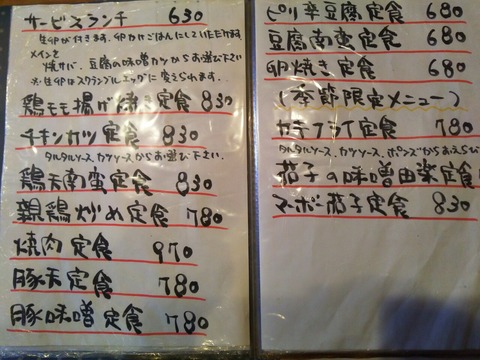 サービスランチ 630
生卵が付きます。卵かけごはんにしていただけます
メインを
焼サバ、豆腐の味噌カツからお選び下さい
※生卵はスクランブルエッグに変えられます。
鶏モモ揚げ焼き定食 830
チキンカツ定食 830
タルタルソース、カツソースからお選び下さい。
鶏天南蛮定食 830
親鶏炒め定食 780
焼肉定食 970
豚天定食 780
豚味噌定食 780
ピリ辛豆腐定食 680
豆腐南蛮定食 680
卵焼き定食 680
(季節限定メニュー)
カキフライ定食 780
タルタルソース、カツソース、ポンズからお選び
茄子の味噌田楽定食
マーボー茄子定食 830